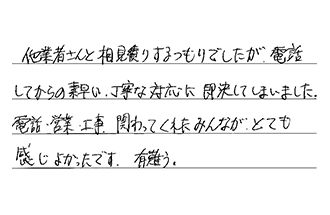 他業者さんと相見積りするつもりでしたが、電話
してからの素早い、丁寧な対応に即決してしまいました。
電話・営業・工事、関わってくれたみんなが、とても
感じよかったです。有難う。